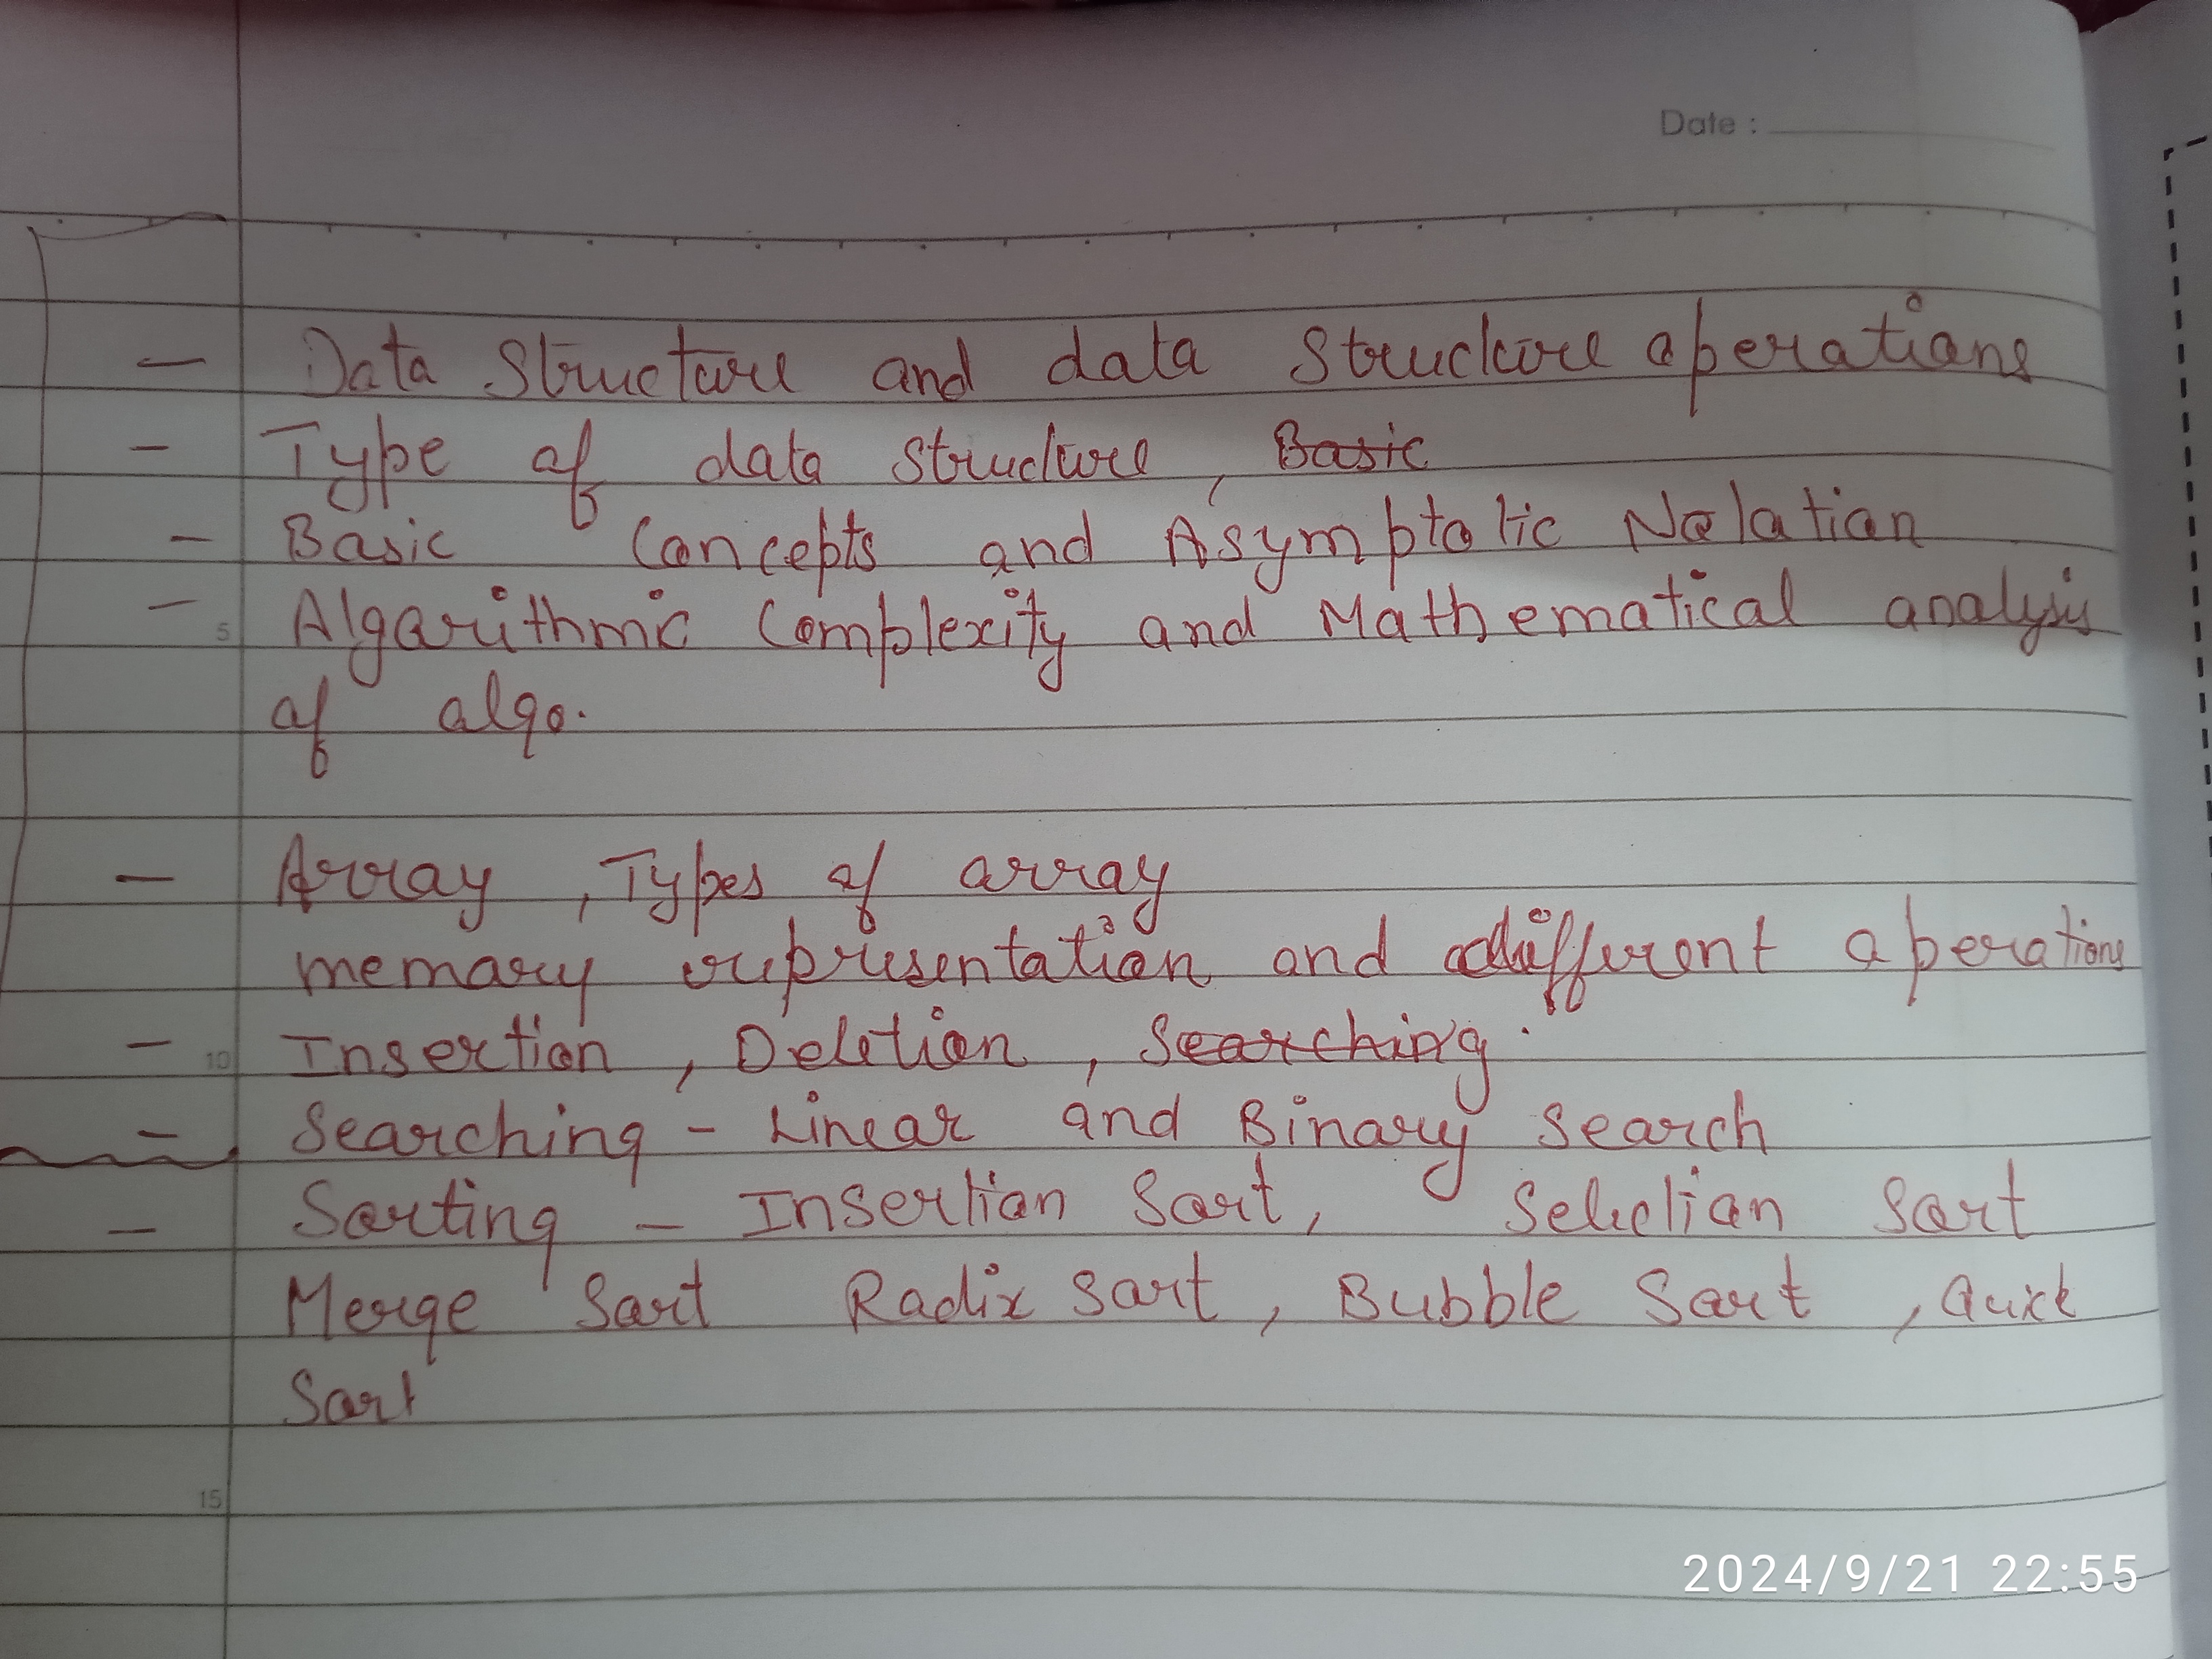 Date :
- Data Structure and data Structure operations
- Type of data structure, Basic
- Basic Concepts and Asymptotic Notation
5 - Algorithmic Complexity and Mathematical analysis
of algo.
- Array, Types of array
memory representation and different operations
10 - Insertion, Deletion, Searching.
- Searching - Linear and Binary Search
- Sorting - Insertion Sort, Selection Sort
Merge Sort Radix Sort, Bubble Sort, Quick
Sort
15
2024/9/21 22:55